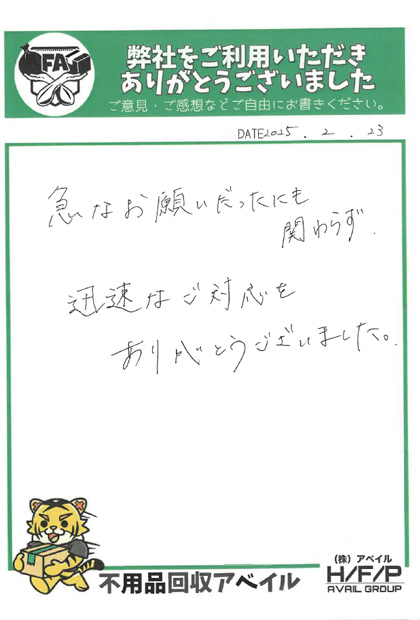 FA
弊社をご利用いただき
ありがとうございました
ご意見・ご感想などご自由にお書きください。
DATE2025.2.23
急なお願いだったにも
関わらず.
迅速なご対応を
ありがとうございました。
不用品回収アベイル
(株)アベイル
H/F/P
AVAIL GROUP